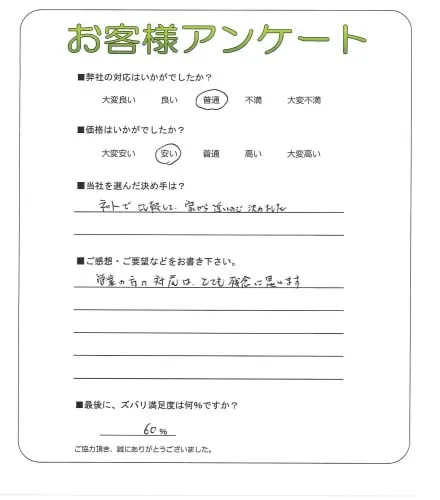 お客様アンケート
■弊社の対応はいかがでしたか?
大変良い 良い 普通 不満 大変不満
■価格はいかがでしたか?
大変安い 安い 普通 高い 大変高い
■当社を選んだ決め手は?
ネットで比較して、家から近いので決めました
■ご感想・ご要望などをお書き下さい。
営業の方の対応は、とても残念に思います
■最後に、ズバリ満足度は何%ですか?
60%
ご協力頂き、誠にありがとうございました。